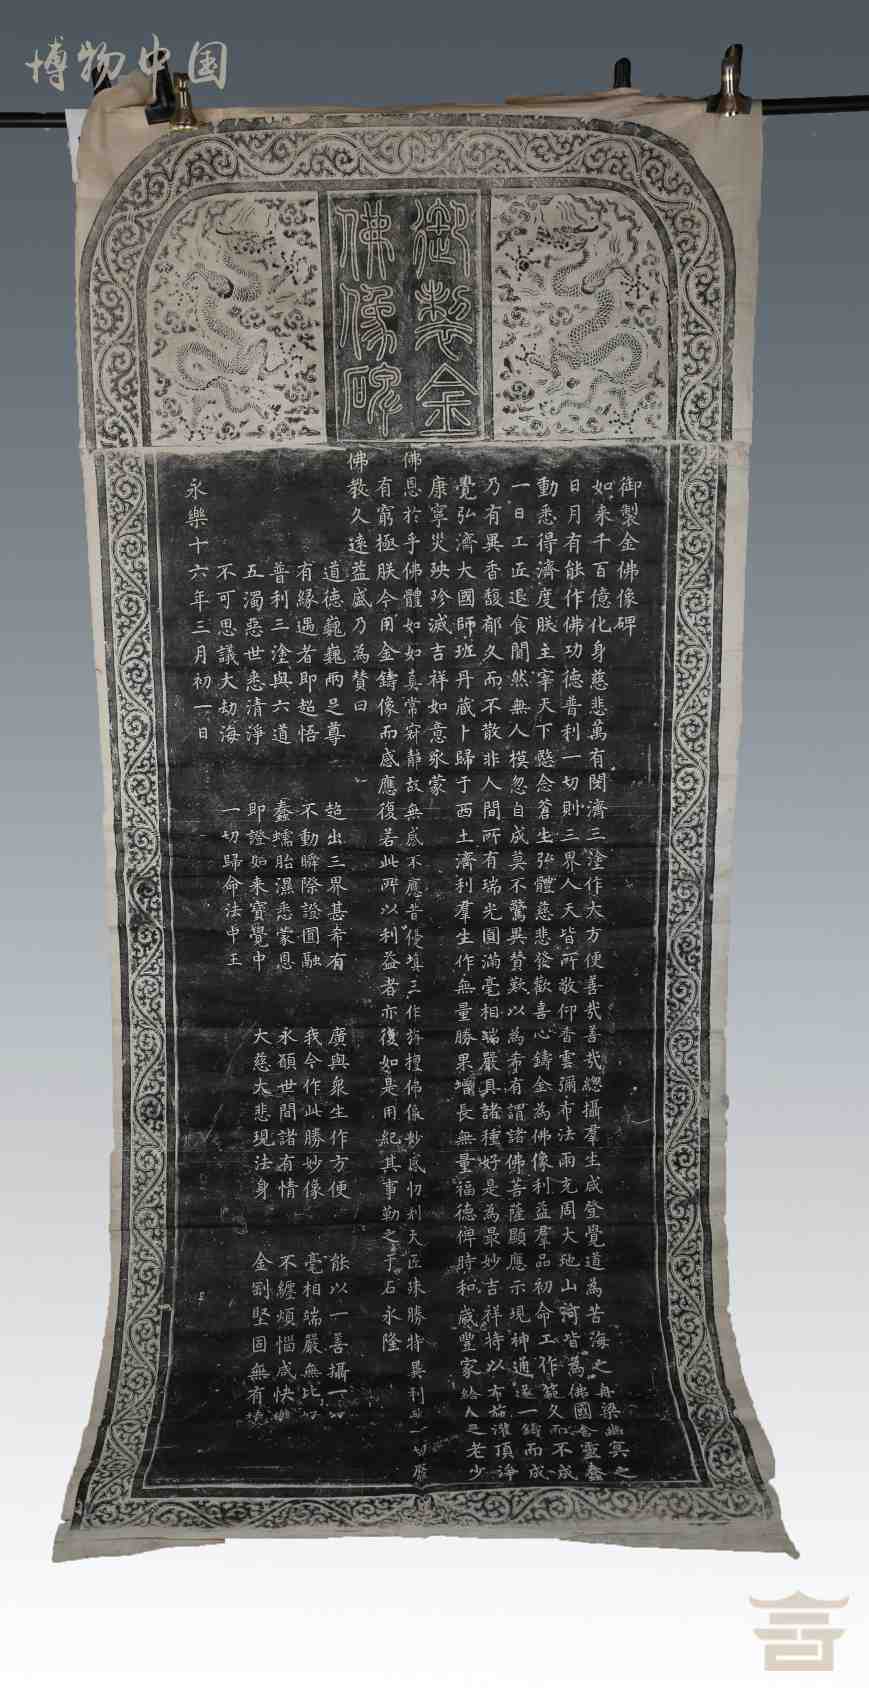 博物中国
御製金
佛像碑
御製金佛像碑
如来千百億化身慈悲萬有閔濟三塗作大方便善哉善哉總攝羣生咸登覺道為苦海之舟梁幽冥之
日月有能作佛功德普利一切則三界人天皆所敬仰香雲彌布法雨充周大地山河皆為佛國含靈蠢
動悉得濟度朕主宰天下愍念蒼生弘體慈悲發歡喜心鑄金為佛像利益羣品初命工作範久而不成
一日工匠退食闃然無人模忽自成莫不驚異贊歎以為希有謂諸佛菩薩顯應示現神通遂一鑄而成
乃有異香馥郁久而不散非人間所有瑞光圓滿毫相端嚴具諸種好是為最妙吉祥特以布施灌頂淨
覺弘濟大國師班丹藏卜歸于西土濟利羣生作無量勝果增長無量福德俾時和歲豐家給人足老少
康寧災殃殄滅吉祥如意永蒙
佛恩於乎佛體如如真常寂靜故無感不應昔優填王作旃檀佛像妙感忉利天匠殊勝特異利益一切
有窮極朕今用金鑄像而感應復若此所以利益者亦復如是用紀其事勒之于石永隆
佛教久遠益盛乃為贊曰
道德巍巍兩足尊 超出三界甚希有 廣與衆生作方便 能以一善攝一切
有緣遇者即超悟 不動瞬際證圓融 我今作此勝妙像 毫相端嚴無比
普利三塗與六道 蠢蠕胎濕悉蒙恩 永願世間諸有情 不纏煩惱咸快樂
五濁惡世悉清淨 即證如来寶覺中 大慈大悲現法身 金剛堅固無有
不可思議大劫海 一切歸命法中王
永樂十六年三月初一日